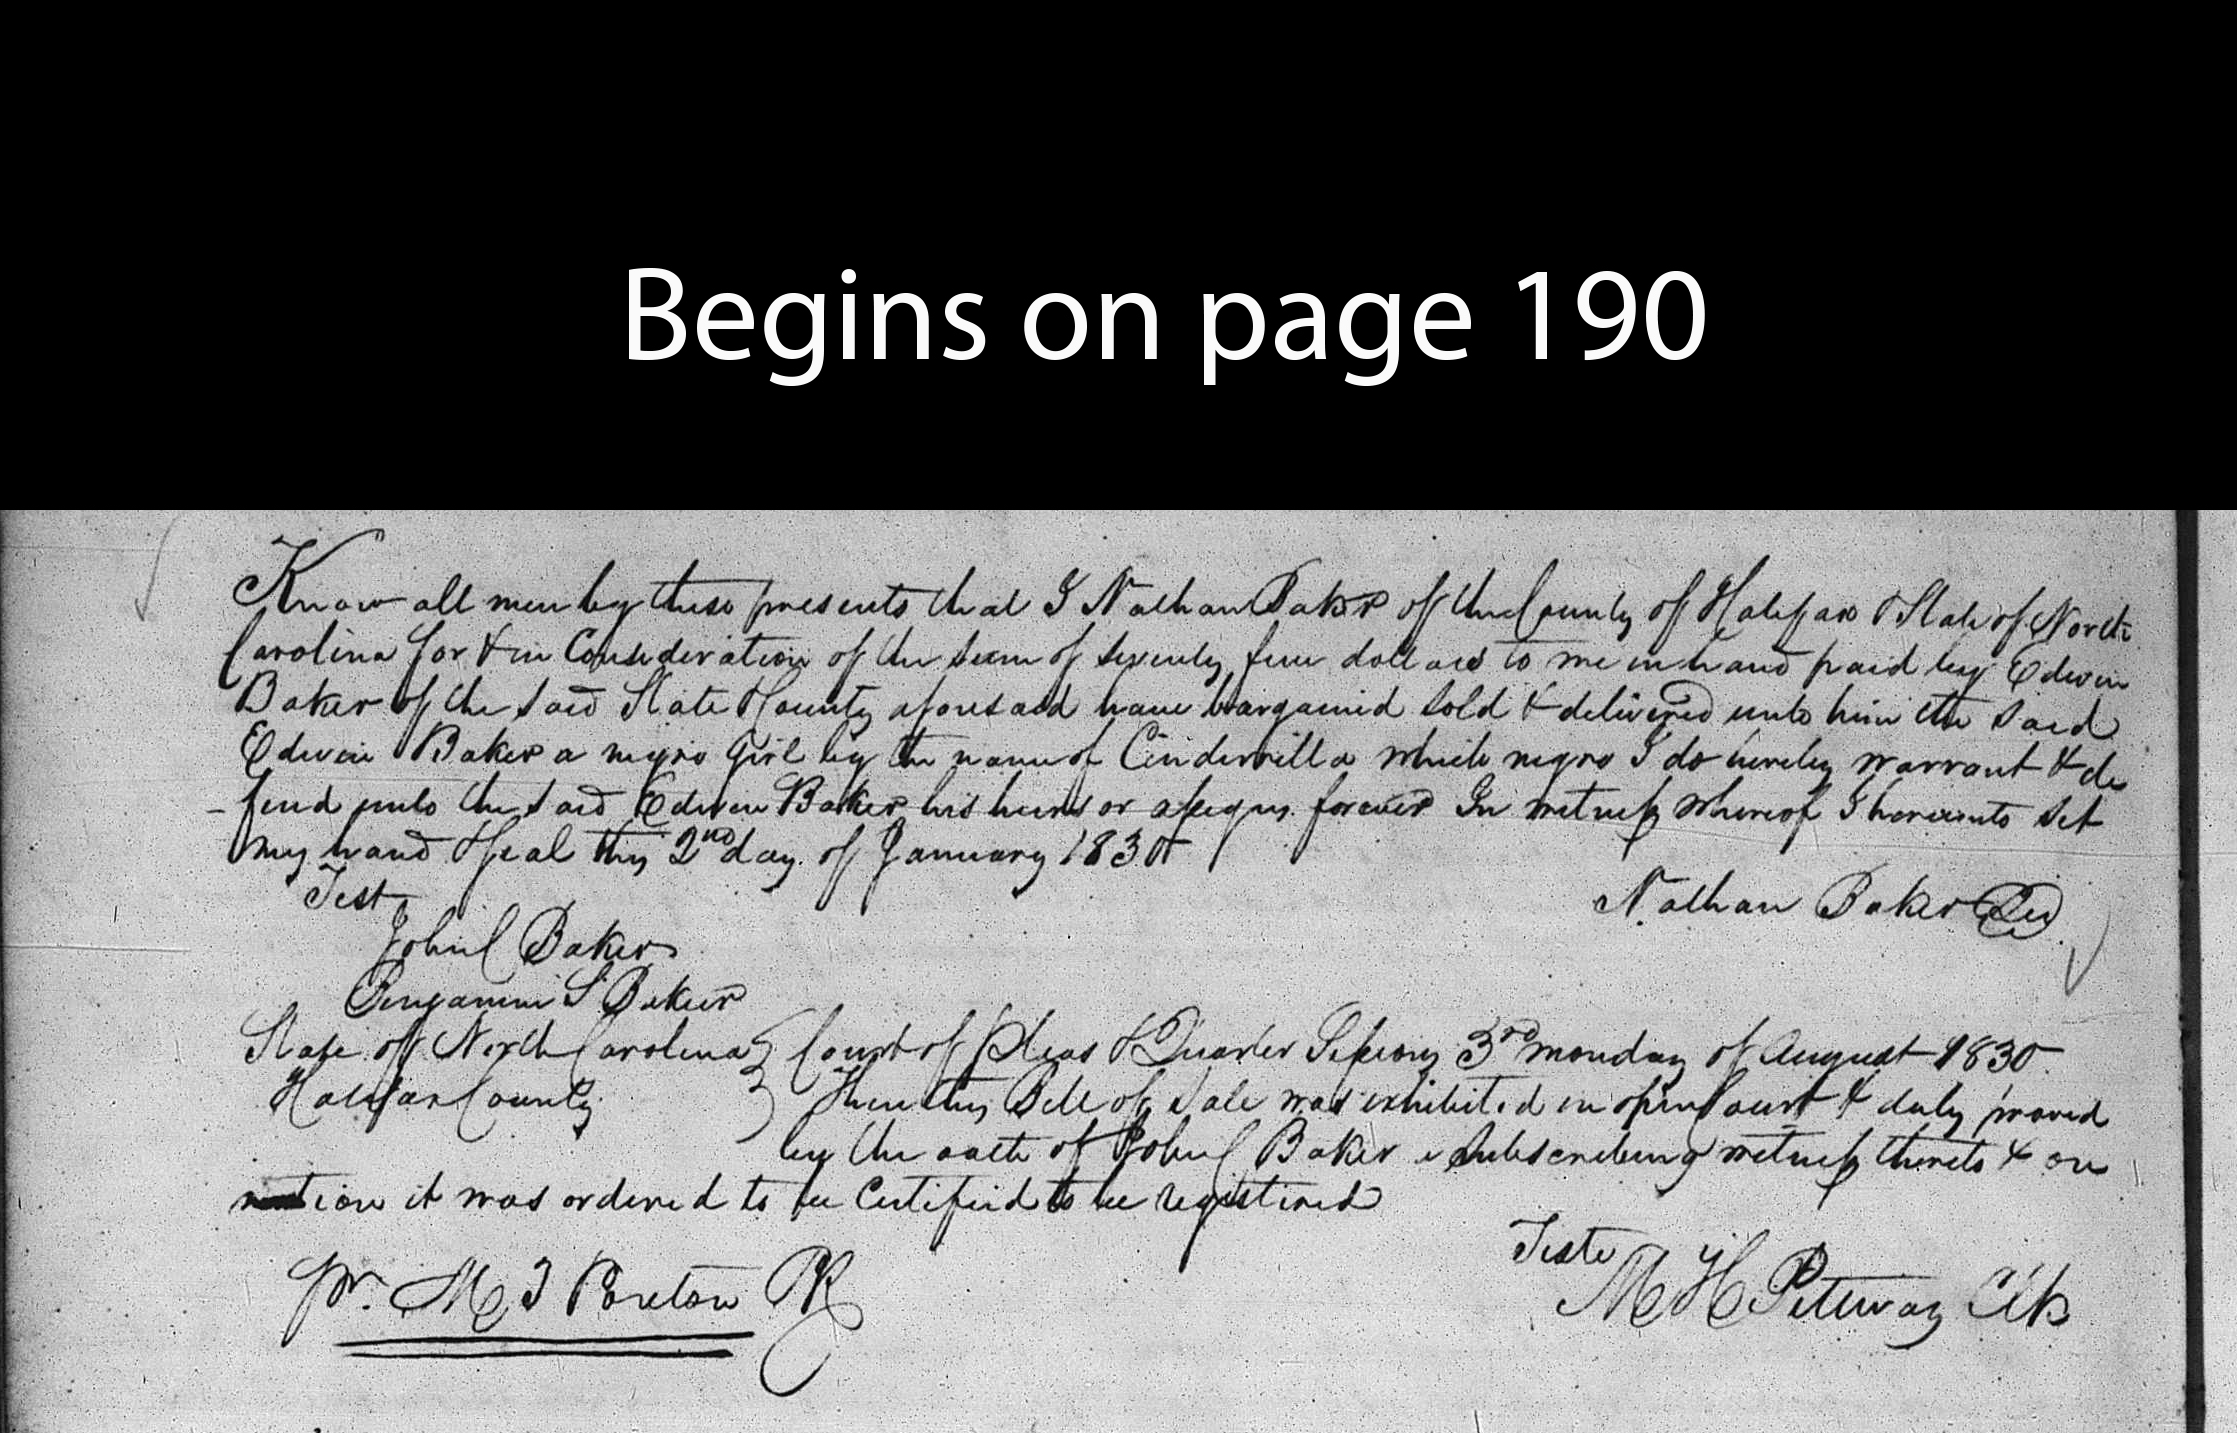 Begins on page 190
Know all men by these presents that I Nathan Baker of the County of Halifax & State of North
Carolina for & in Consideration of the sum of seventy five dollars to me in hand paid by Edwin
Baker of the said State & County aforesaid have bargained sold & delivered unto him the said
Edwin Baker a negro Girl by the name of Cinderrilla which negro I do hereby warrant & de
- fend unto the said Edwin Baker his heirs or assigns forever In witness whereof I hereunto set
my hand & seal this 2nd day of January 1830
Test
Nathan Baker
John C Baker
Benjamin S Baker
State of North Carolina } Court of Pleas & Quarter Sessions 3rd monday of August 1830
Halifax County } Then this Bill of Sale was exhibited in open Court & duly proved
by the oath of John C Baker a Subscribing witness thereto & on
motion it was ordered to be Certified to be registered
Teste
pr. M H Peteway Clk